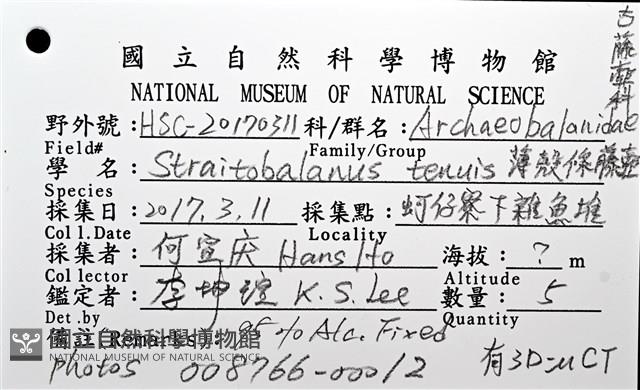 古藤壺科
國立自然科學博物館
NATIONAL MUSEUM OF NATURAL SCIENCE
野外號:HSC-20170311 科/群名:Archaeobalanidae
Field# Family/Group
學名:Straitobalanus tenuis 薄殼條藤壺
Species
採集日:2017.3.11 採集點:蚵仔寮下雜魚堆
Coll.Date Locality
採集者:何宣庆 Hans Ho 海拔:? m
Collector Altitude
鑑定者:李坤瑄 K.S.Lee 數量:5
Det.by Quantity
備註 Remarks: 95% Alc. Fixed
國立自然科學博物館
NATIONAL MUSEUM OF NATURAL SCIENCE
photos 008766-00012 有3D-μCT